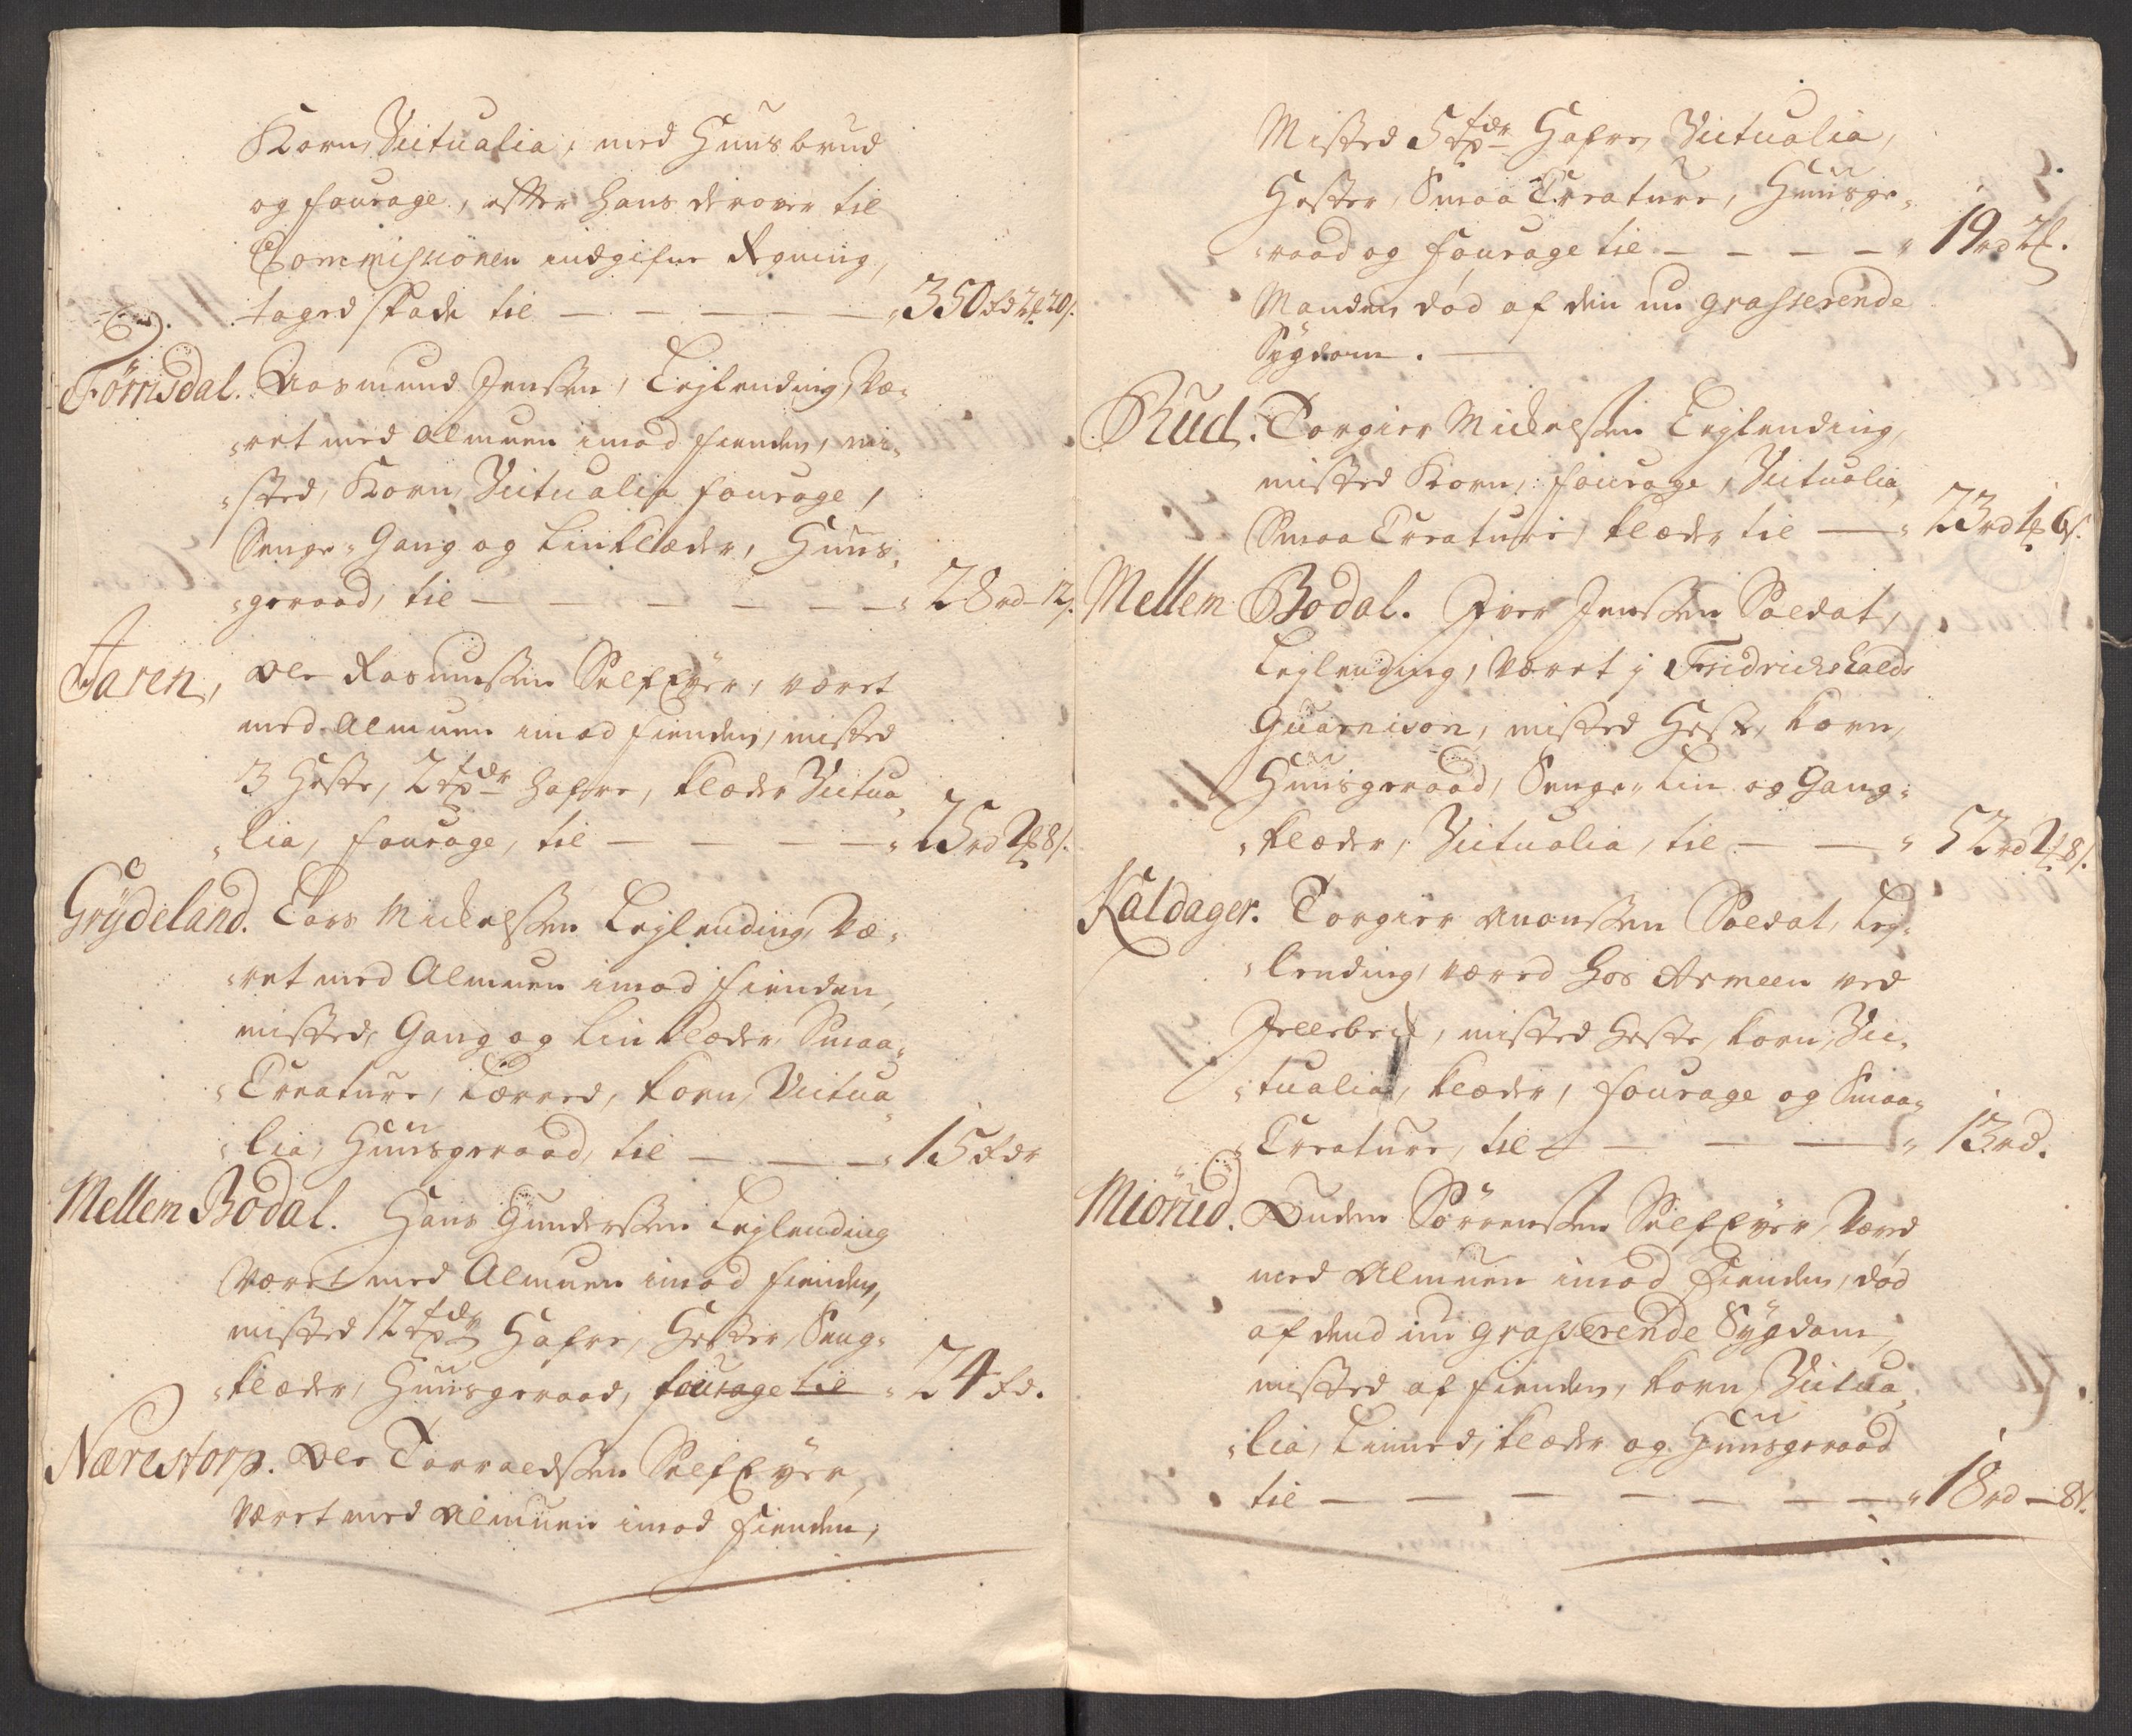 Korn, Victualia, med Huusbrud
og fourage, effter hans derover til
Commissionen indgifne Regning,
taged skade til — — — — — 350 rd 2 # 20 s.
Förrisdal. Aasmund Jenssen, Leylending, Væ-
ret med almuen imod fienden, mi-
sted, Korn, Victualia fourage,
Senge- Gang og Linklæder, Huus-
geraad, til — — — — — — 28 rd - 12 s.
Aaren, Ole Rasmussen SelfEyer, været
med Almuen imod fienden, misted
3 Heste, 2 tdr hafre, klæder Victua-
lia, fourage, til — — — — 25 rd 2 # 8 s.
Grÿdeland. Lars Mickelssen Leylending, Væ-
ret med Almuen imod fienden,
misted, Gang og Linklæder, Smaa-
Creature, korn, Victua-
lia, Huusgeraad, til — — — 15 rdr
Mellem Bodal. Hans Gunderssen Leylending
været med Almuen imod fienden,
misted 12 tdr Hafre, Hester, Seng-
klæder, Huusgeraad, fourage til 24 rd.
Nærestorp. Ole Torvaldssen SelfEyer,
Været med Almuen imod fienden,
Misted 5 tdr Hafre, Victualia,
Hester, Smaa Creature, Huusge-
raad og fourage til — — — — 19 rd 2 #.
Manden död af den nu grasserende
Sygdom. —
Rud. Torgier Mickelssen Leylending,
misted Korn, fourage, Victualia,
Smaa Creature, klæder til — 23 rd 1 # 6 s.
Mellem Bodal. Iver Jenssen Soldat,
Leylending, Været j Fridrichshalds
Guarnison, misted Hest, korn,
Huusgeraad, Senge- Lin og Gang-
klæder, Victualia, til — — 52 rd 2 # 8 s.
Kaldager. Torgier Amonssen Soldat, Ley-
lending, været hos Armeen ved
misted Heste, korn, Vic-
tualia, klæder, fourage og Smaa-
Creature, til — — — 13 rd.
Miörud. Auden Sörrenssen SelfEyer, Været
med Almuen imod Fienden, död
af dend nu grasserende Sÿgdom,
misted af fienden, korn, Victua-
lia, Linned, klæder og Huusgeraad
til — — — — — — — 18 rd — 8 s.